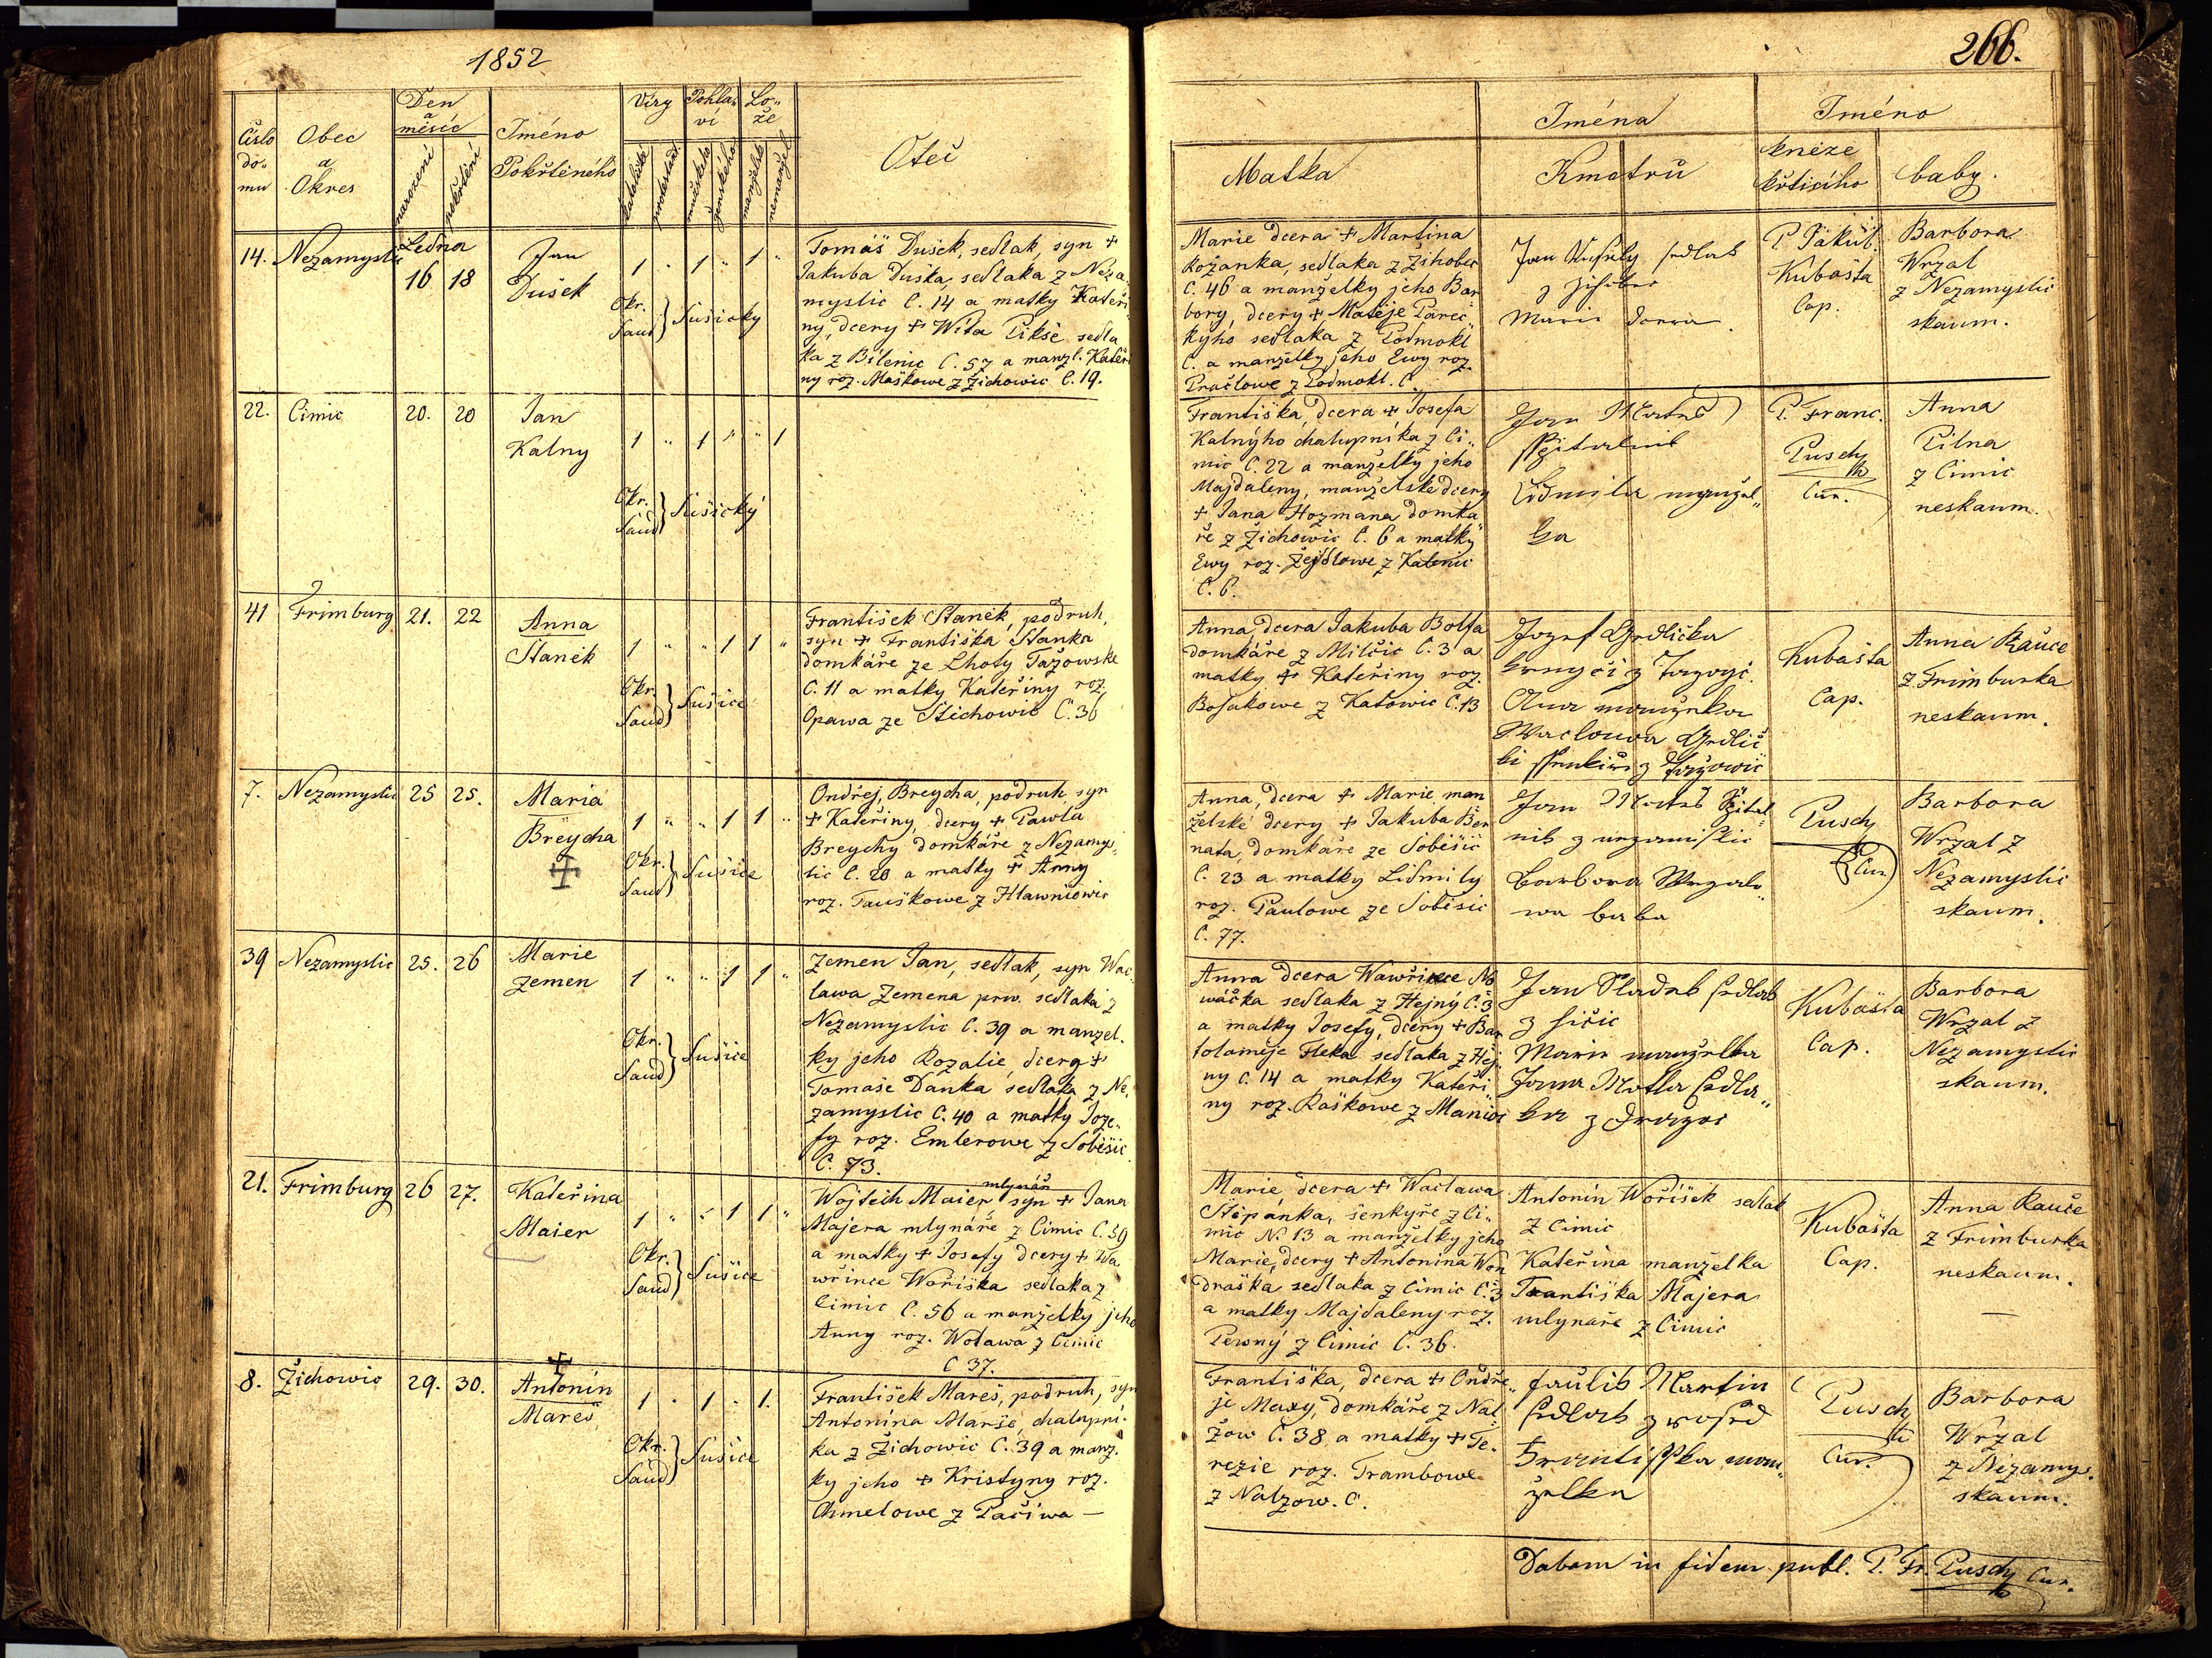 1852
266.
Číslo do- mu
Obec a Okres
Den a měsíc
narození
pokřtění
Jméno Pokřtěného
Víry
katolické
protestant.
Pohla- ví
mužského
ženského
Lo- že
manželské
nemanžel.
Otec
Matka
Jména Kmotrů
Jméno
kněze křtícího
baby.
14. Nezamyslic
Ledna
16 18
Jan
Dušek
1 " 1 " 1 "
Okr. Saud } Sušický
Tomáš Dušek, sedlak, syn +
Jakuba Duška, sedlaka z Neza-
myslic C. 14 a matky Kateři-
ny, dcery + Wíta Pikše sedla
ka z Bílenic C. 57 a manzl. Kateři
ny roz. Maškowe z Žichowic C. 19.
Marie dcera + Martina
Rožanka, sedlaka z Žihobec
C. 46 a manzelky jeho Bar
bory, dcery + Matěje Pareč
kýho sedlaka z Podmokl
C. a manželky jeho Ewy roz.
Pračlowe z Podmokl. C.
Jan sedlak
z Žihobec
Marie dcera
P. Jakub.
Kubašta
Cap.
Barbora
Wrzal
z Nezamyslic
skaum.
22. Cimic
20. 20
Jan
Kalny
1 " 1 " " 1
Okr. Saud } Sušický
Františka, dcera + Josefa
Kalnýho chalupníka z Ci-
mic C. 22 a manželky jeho
Majdaleny, manželske dcery
+ Jana Hozmana domka
ře z Žichowic C. 6 a matky
Ewy roz. Žejdlowe z Kalenic
C. 6.
Jan
Špitalnik
Lidmila manžel-
ka
P. Franc.
Pusch
Cur.
Anna
Pilna
z Cimic
neskaum.
41 Frimburg
21. 22
Anna
Staněk
1 " " 1 1 "
Okr. Saud } Sušice
František Staněk, podruh,
syn + Františka Stanka
domkáře ze Lhoty Tažowske
C. 11 a matky Kateřiny roz
Opawa ze Stichowic C. 36
Anna, dcera Jakuba Bolfa
domkáře z Milčic C. 3 a
matky + Kateřiny roz.
Bosakowe z Katowic C. 13
Jozef Hrdlička
Anna manželka
Waclowa Hrdlič
ki
Kubašta
Cap.
Anna Rauče
z Frimburka
neskaum.
7. Nezamyslic
25 25.
Maria
Breycha
+
1 " " 1 1 "
Okr. Saud } Sušice
Ondřej Breycha, podruh syn
+ Kateřiny, dcery + Pawla
Breychy domkáře z Nezamys-
lic C. 20 a matky + Anny
roz. Tauškowe z Hlawniowic
Anna, dcera + Marie man
želské dcery + Jakuba Ber
nata, domkáře ze Soběšic
C. 23 a matky Lidmily
roz. Paulowe ze Soběsic
C. 77.
Jan Špital-
nik z nezamislic
Barbora Wrzalo-
wa baba
Pusch
Cur.
Barbora
Wrzal z
Nezamyslic
skaum.
39 Nezamyslic
25. 26
Marie
Zemen
1 " " 1 1 "
Okr. Saud } Sušice
Zemen Jan, sedlak, syn Wac-
lawa Zemena prw. sedlaka z
Nezamyslic C. 39 a manzel.
ky jeho Rozalie, dcery +
Tomaše Danka sedlaka z Ne-
zamyslic C. 40 a matky Joze-
fy roz. Emlerowe z Soběšic
C. 73.
Anna dcera Wawřince No
wačka sedlaka z Hejný C. 3
a matky Josefy, dcery + Bar
tolaměje Fleka sedlaka z Hej-
ny C. 14 a matky Kateři-
ny roz. Raškowe z Maňow
Jan Sladek sedlak
z
Marie manželka
Jana sedla-
ka z
Kubašta
Cap.
Barbora
Wrzal z
Nezamyslic
skaum.
21. Frimburg
26 27.
Kateřina
Maier
1 " " 1 1 "
Okr. Saud } Sušice
mlynář
Wojtěch Maier, syn + Jana
Majera mlynáře, z Cimic C. 59
a matky + Josefy dcery + Wa
wřince Woříška sedlaka z
Cimic C. 56 a manželky jeho
Anny roz. Wotawa z Cimic
C 37.
Marie, dcera + Waclawa
Štěpanka, šenkýře z Ci-
mic N. 13 a manželky jeho
Marie, dcery + Antonina Won
draška sedlaka z Cimic C. 3
a matky Majdaleny roz.
Pewný z Cimic C. 36.
Antonín Woříšek sedlak
z Cimic
Kateřina manželka
Františka Majera
mlynáře z Cimic
Kubašta
Cap.
Anna Rauče
z Frimburka
neskaum.
8. Žichowic
29. 30.
+
Antonín
Mareš
1 " 1 " 1.
Okr. Saud } Sušice
František Mareš, podruh, syn
Antonína Marše, chalupní-
ka z Žichowic C. 39 a manz.
ky jeho + Kristyny roz.
Chmelowe z Pačiwa —
Františka, dcera + Ondře-
je Maxy, domkáře z Nal
žow C. 38 a matky + Te-
rezie roz. Trambowe
z Nalzow. C.
Martin
sedlak
Františka man-
želka
Pusch
Cur.
Barbora
Wrzal
z Nezamys.
skaum.
Datum in fidem publ. P. Fr. Pusch Cur.